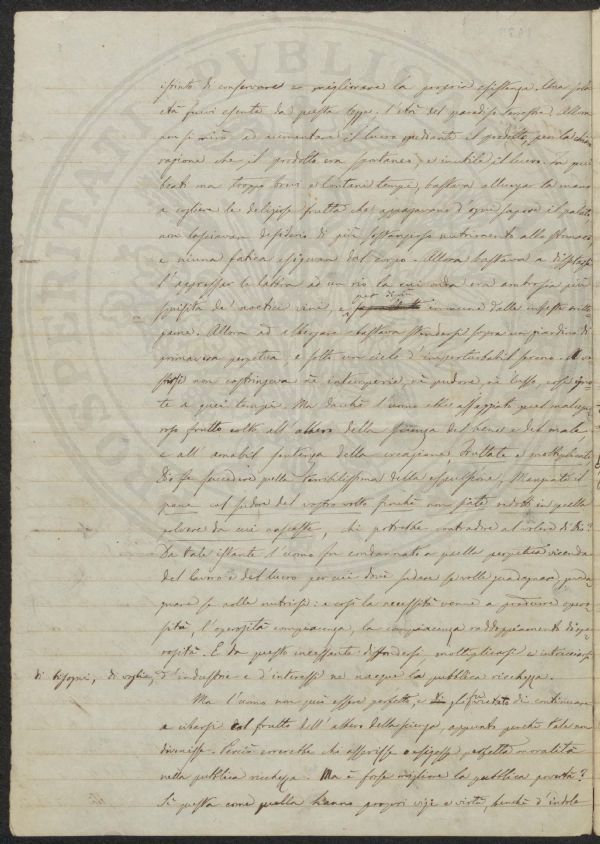 istinto di conservare e migliorare la propria esistenza. Una sola
età fuvvi esente da questa legge: l'età del paradiso terrestre. Allora
non si mirò ad aumentare il lucro mediante il prodotto, per la chia
ragione che il prodotto era spontaneo, e inutile il lucro. In quei
beati ma troppo brevi e lontani tempi, bastava allungar la mano
a cogliere le deliziose frutta che appagavano d'ogni sapore il palato
non lasciavan desiderio di più sostanzioso nutrimento allo stomaco,
e niuna fatica esigevan dal corpo. Allora bastava a dissetarsi
l'appressar le labbra ad un rio la cui onda era ambrosia più
squisita de' nostri vini, e per immune dalle infeste
Allora ad albergare bastava stendersi sopra un giardino di
primavera perpetua e sotto un cielo d'imperturbabil sereno. A
non costringeva nè intemperie, nè pudore, nè lusso, cose igno
te a quei tempi. Ma dacchè l'uomo ebbe assaggiato quel
frutto colto all'albero della scienza del bene e del male,
e all'amabil sentenza della creazione, Fruttate e moltiplicate,
Dio fe' succedere quella terribilissima della espulsione, Mangiate il
pane col sudore del vostro volto finchè non siate ridotti in quella
polvere da cui nasceste, chi potrebbe contradire al volere di Dio?
Da tale istante l'uomo fu condannato a quella perpetua vicenda
del lavoro e del lucro per cui dovè sudare se volle guadagnare, guada
gnare se volle nutrirsi: e così la necessità venne a produrre opero
sità, l'operosità compiacenza, la compiacenza raddoppiamento di ope
rosità. E da questo incessante diffondersi, moltiplicarsi e intrecciarsi
di bisogni, di voglie, d'industrie e d'interessi ne nacque la pubblica ricchezza.
Ma l'uomo non può essere perfetto, e di gli fu vietato di continuare
a cibarsi del frutto dell'albero della scienza, appunto perchè tale non
divenisse. Perciò errerebbe chi asserisse o esigesse perfetta moralità
nella pubblica ricchezza. Ma è forse migliore la pubblica povertà?
Sì questa come quella hanno proprj vizj e virtù, benchè d'indole